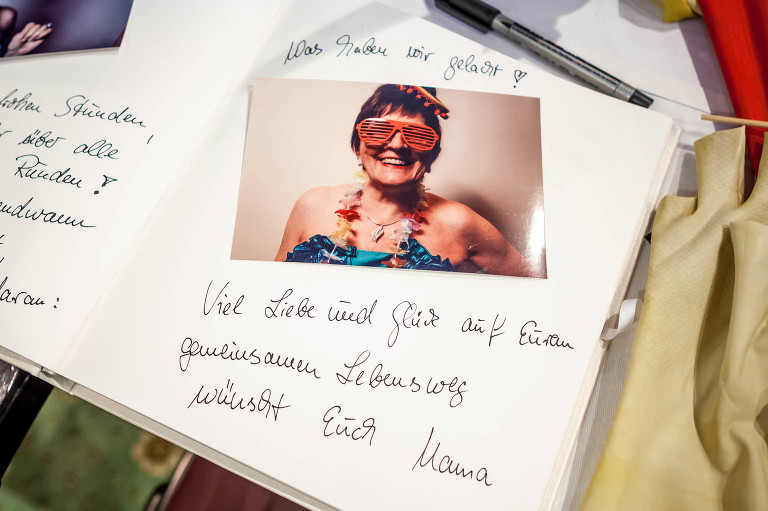 Stunden,
über alle
Runden!
Was haben wir gelacht!
Viel Liebe und Glück auf Euren
gemeinsamen Lebensweg
wünscht Euch Mama